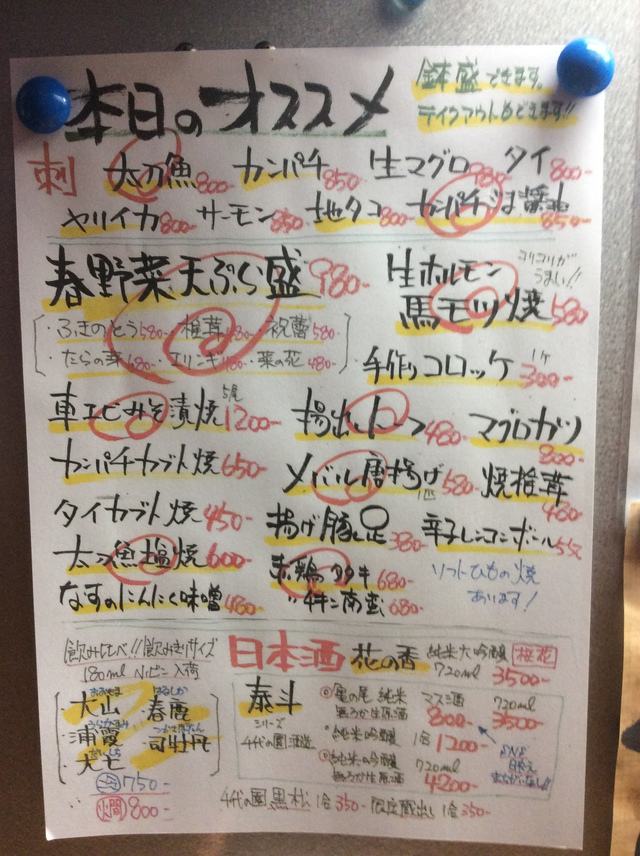 本日のオススメ
鉢盛できます。
テイクアウトもできます!!
刺 太刀魚800- カンパチ850- 生マグロ980- タイ800-
ヤリイカ800- サーモン850 地タコ800- カンパチごま醤油850-
春野菜天ぷら盛980-
・ふきのとう580- ・椎茸480- ・祝蕾580-
・たらの芽680- ・エリンギ480- ・菜の花480-
生ホルモン コリコリが
うまい!!
馬モツ焼580
手作りコロッケ1ケ300-
車エビみそ漬焼5尾1200- 揚出しトーフ480- マグロカツ800-
カンパチカブト焼650- メバル唐揚げ1匹580- 焼椎茸480-
タイカブト焼450- 揚げ豚足380- 辛子レンコンボール550
太刀魚塩焼600- 赤鶏タタキ680-
なすのにんにく味噌480- 〃チキン南蛮680-
ソフトひもの焼
あります!
飲みくらべ!!飲みきりサイズ
180ml ビン入荷
大山 春鹿
浦霞 司牡丹
750-
燗800-
日本酒 花の香 純米大吟醸 桜花
720ml 3500-
泰斗
シリーズ
千代の園酒造
亀の尾 純米
無ろか生原酒
マス酒 800-
720ml 3500-
純米吟醸 1合1200-
純米吟醸
無ろか生原酒
720ml 4200-
SNS
映え
まちがいなし!!
千代の園 黒松 1合350- 限定蔵出し 1合350-